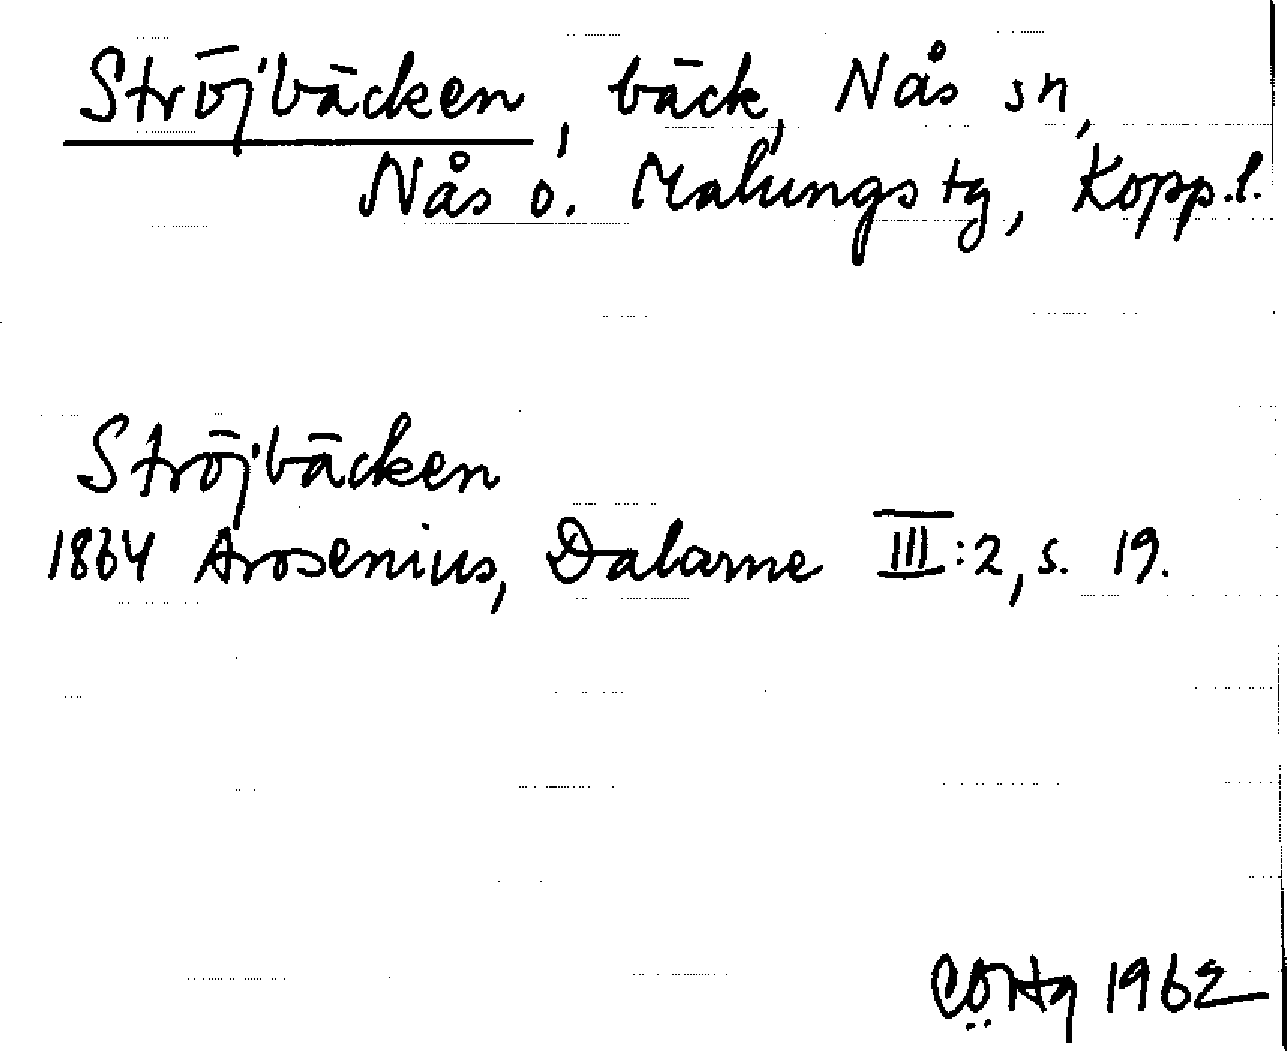 Ströjbäcken, bäck, Nås sn,
Nås o. Malungs tg, Kopp. l.
Ströjbäcken
1864 Arosenius, Dalarne III:2, s. 19.
1962